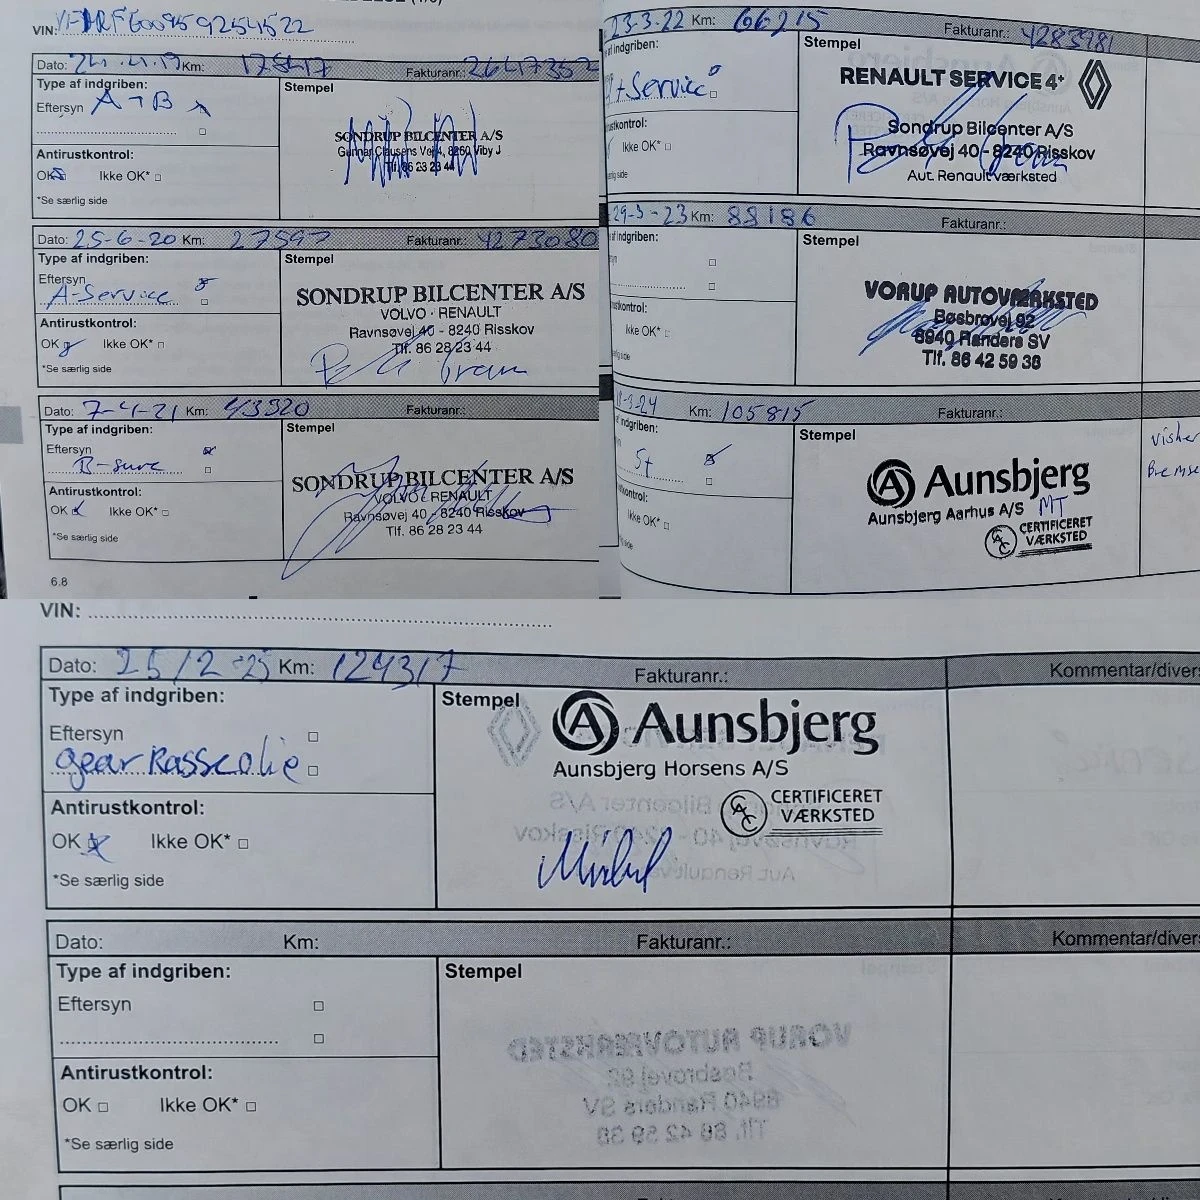 VIN:
Dato: 24.4.19 Km: 17847 Fakturanr.: 2647352
Type af indgriben:
Eftersyn A+B
Stempel
SONDRUP BILCENTER A/S
Gunnar Clausens Vej 4, 8260 Viby J
Tlf. 86 23 23 44
Antirustkontrol:
OK Ikke OK*
*Se særlig side
Dato: 25-6-20 Km: 27597 Fakturanr.: 4273080
Type af indgriben:
Eftersyn
A-Service
Stempel
SONDRUP BILCENTER A/S
VOLVO · RENAULT
Ravnsøvej 40 - 8240 Risskov
Tlf. 86 28 23 44
Antirustkontrol:
OK Ikke OK*
*Se særlig side
Dato: 7-4-21 Km: 43920 Fakturanr.:
Type af indgriben:
Eftersyn
Stempel
SONDRUP BILCENTER A/S
VOLVO · RENAULT
Ravnsøvej 40 - 8240 Risskov
Tlf. 86 28 23 44
Antirustkontrol:
OK Ikke OK*
*Se særlig side
6.8
23-3-22 Km: 66215 Fakturanr.: 4283981
af indgriben:
+Service
Stempel
RENAULT SERVICE 4+
Sondrup Bilcenter A/S
Ravnsøvej 40 - 8240 Risskov
Aut. Renault værksted
Ikke OK*
29-3-23 Km: 88186 Fakturanr.:
indgriben:
Stempel
VORUP AUTOVÆRKSTED
Bøsbrovej 92
8940 Randers SV
Tlf. 86 42 59 38
Ikke OK*
Km: 105815 Fakturanr.:
indgriben:
Stempel
Aunsbjerg
Aunsbjerg Aarhus A/S MT
CAC CERTIFICERET
VÆRKSTED
Ikke OK*
VIN:
Dato: 25/2-25 Km: 124317 Fakturanr.: Kommentar/divers
Type af indgriben:
Eftersyn
gearkasseolie
Stempel
Aunsbjerg
Aunsbjerg Horsens A/S
CAC CERTIFICERET
VÆRKSTED
Antirustkontrol:
OK Ikke OK*
*Se særlig side
Dato: Km: Fakturanr.: Kommentar/divers
Type af indgriben:
Eftersyn
Stempel
Antirustkontrol:
OK Ikke OK*
*Se særlig side